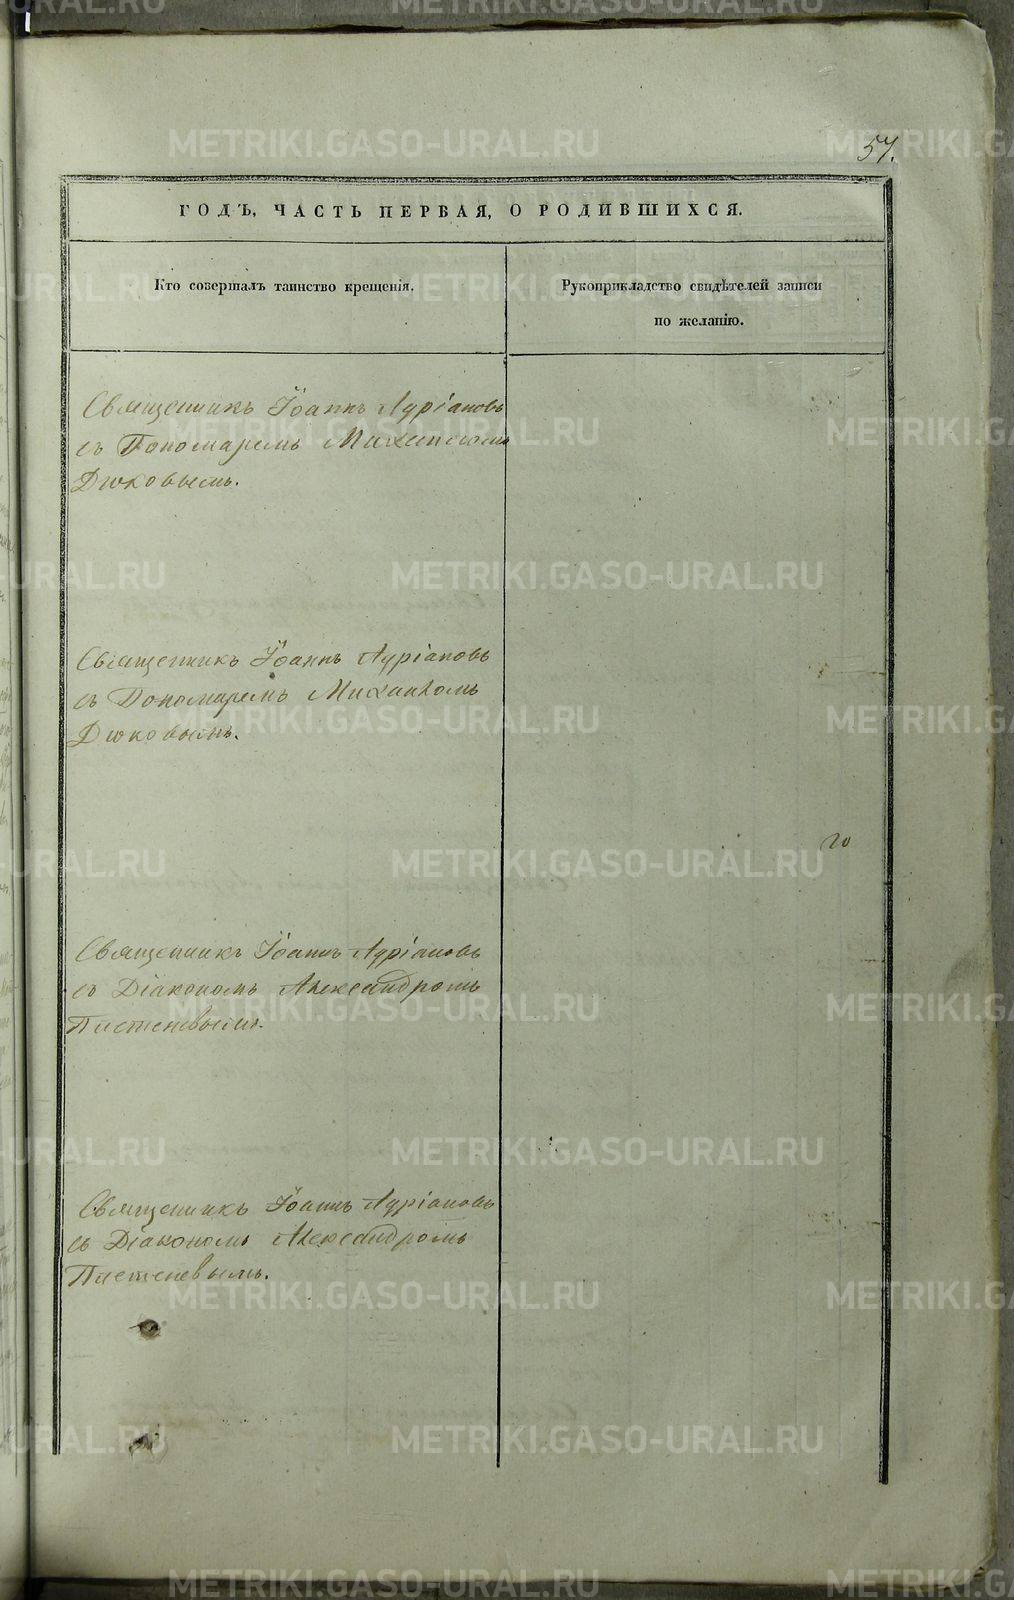 57.
ГОДЪ, ЧАСТЬ ПЕРВАЯ, О РОДИВШИХСЯ.
Кто совершалъ таинство крещенія.
Рукоприкладство свидѣтелей записи
по желанію.
Священникъ Іоаннъ Адріановъ
съ Пономаремъ Михаиломъ
Дюковымъ.
Священникъ Іоаннъ Адріановъ
съ Пономаремъ Михаиломъ
Дюковымъ.
го
Священникъ Іоаннъ Адріановъ
съ Діакономъ Александромъ
Священникъ Іоаннъ Адріановъ
съ Діакономъ Александромъ
METRIKI.GASO-URAL.RU